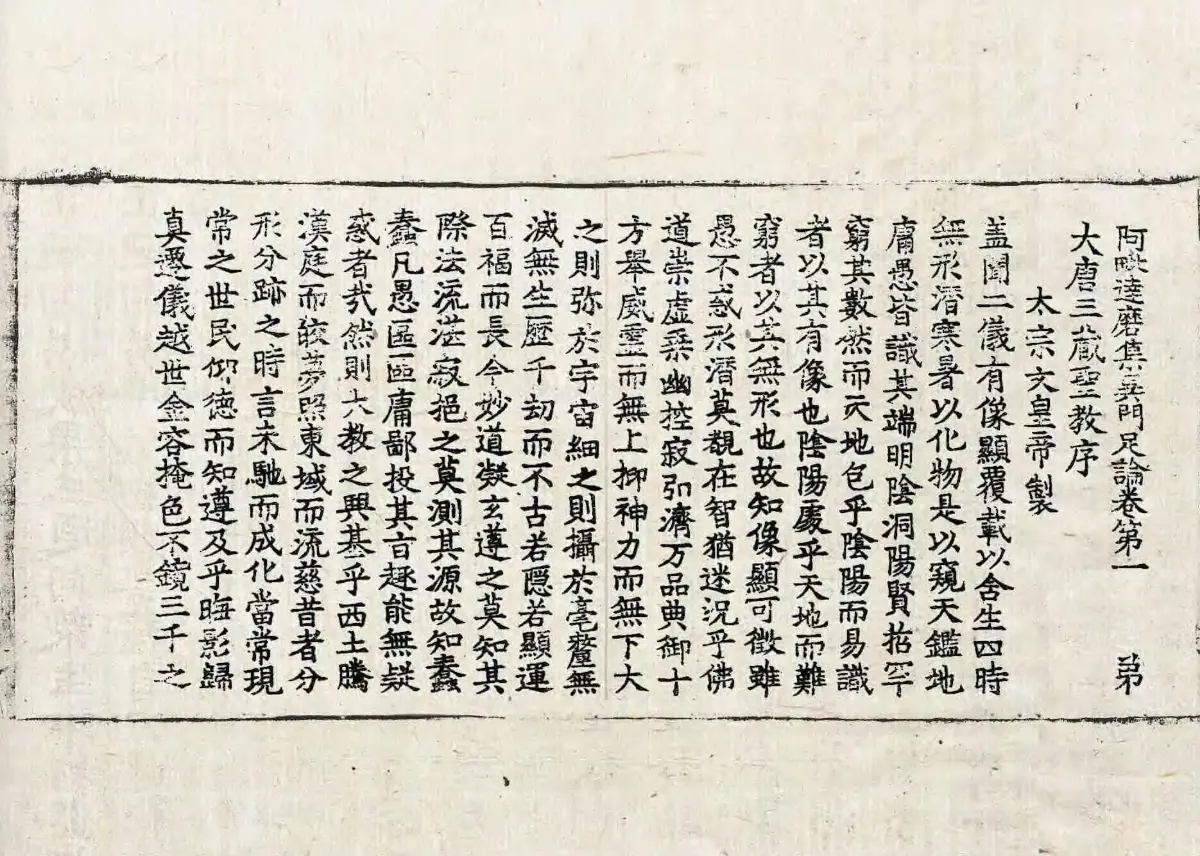 阿毗達磨集異門足論卷第一　弟
大唐三藏聖教序
太宗文皇帝製
盖聞二儀有像顯覆載以含生四時
無形潛寒暑以化物是以窺天鑑地
庸愚皆識其端明陰洞陽賢拈罕
窮其數然而天地包乎陰陽而易識
者以其有像也陰陽處乎天地而難
窮者以其無形也故知像顯可徵雖
愚不惑形潛莫覩在智猶迷況乎佛
道崇虛乘幽控寂弘濟万品典御十
方舉威靈而無上抑神力而無下大
之則弥於宇宙細之則攝於毫氂無
滅無生歷千劫而不古若隱若顯運
百福而長今妙道凝玄遵之莫知其
際法流湛寂挹之莫測其源故知蠢
蠢凡愚區區庸鄙投其旨趣能無疑
惑者㢤然則大教之興基乎西土騰
漢庭而皎夢照東域而流慈昔者分
形分跡之時言未馳而成化當常現
常之世民仰德而知遵及乎晦影歸
真遷儀越世金容掩色不鏡三千之